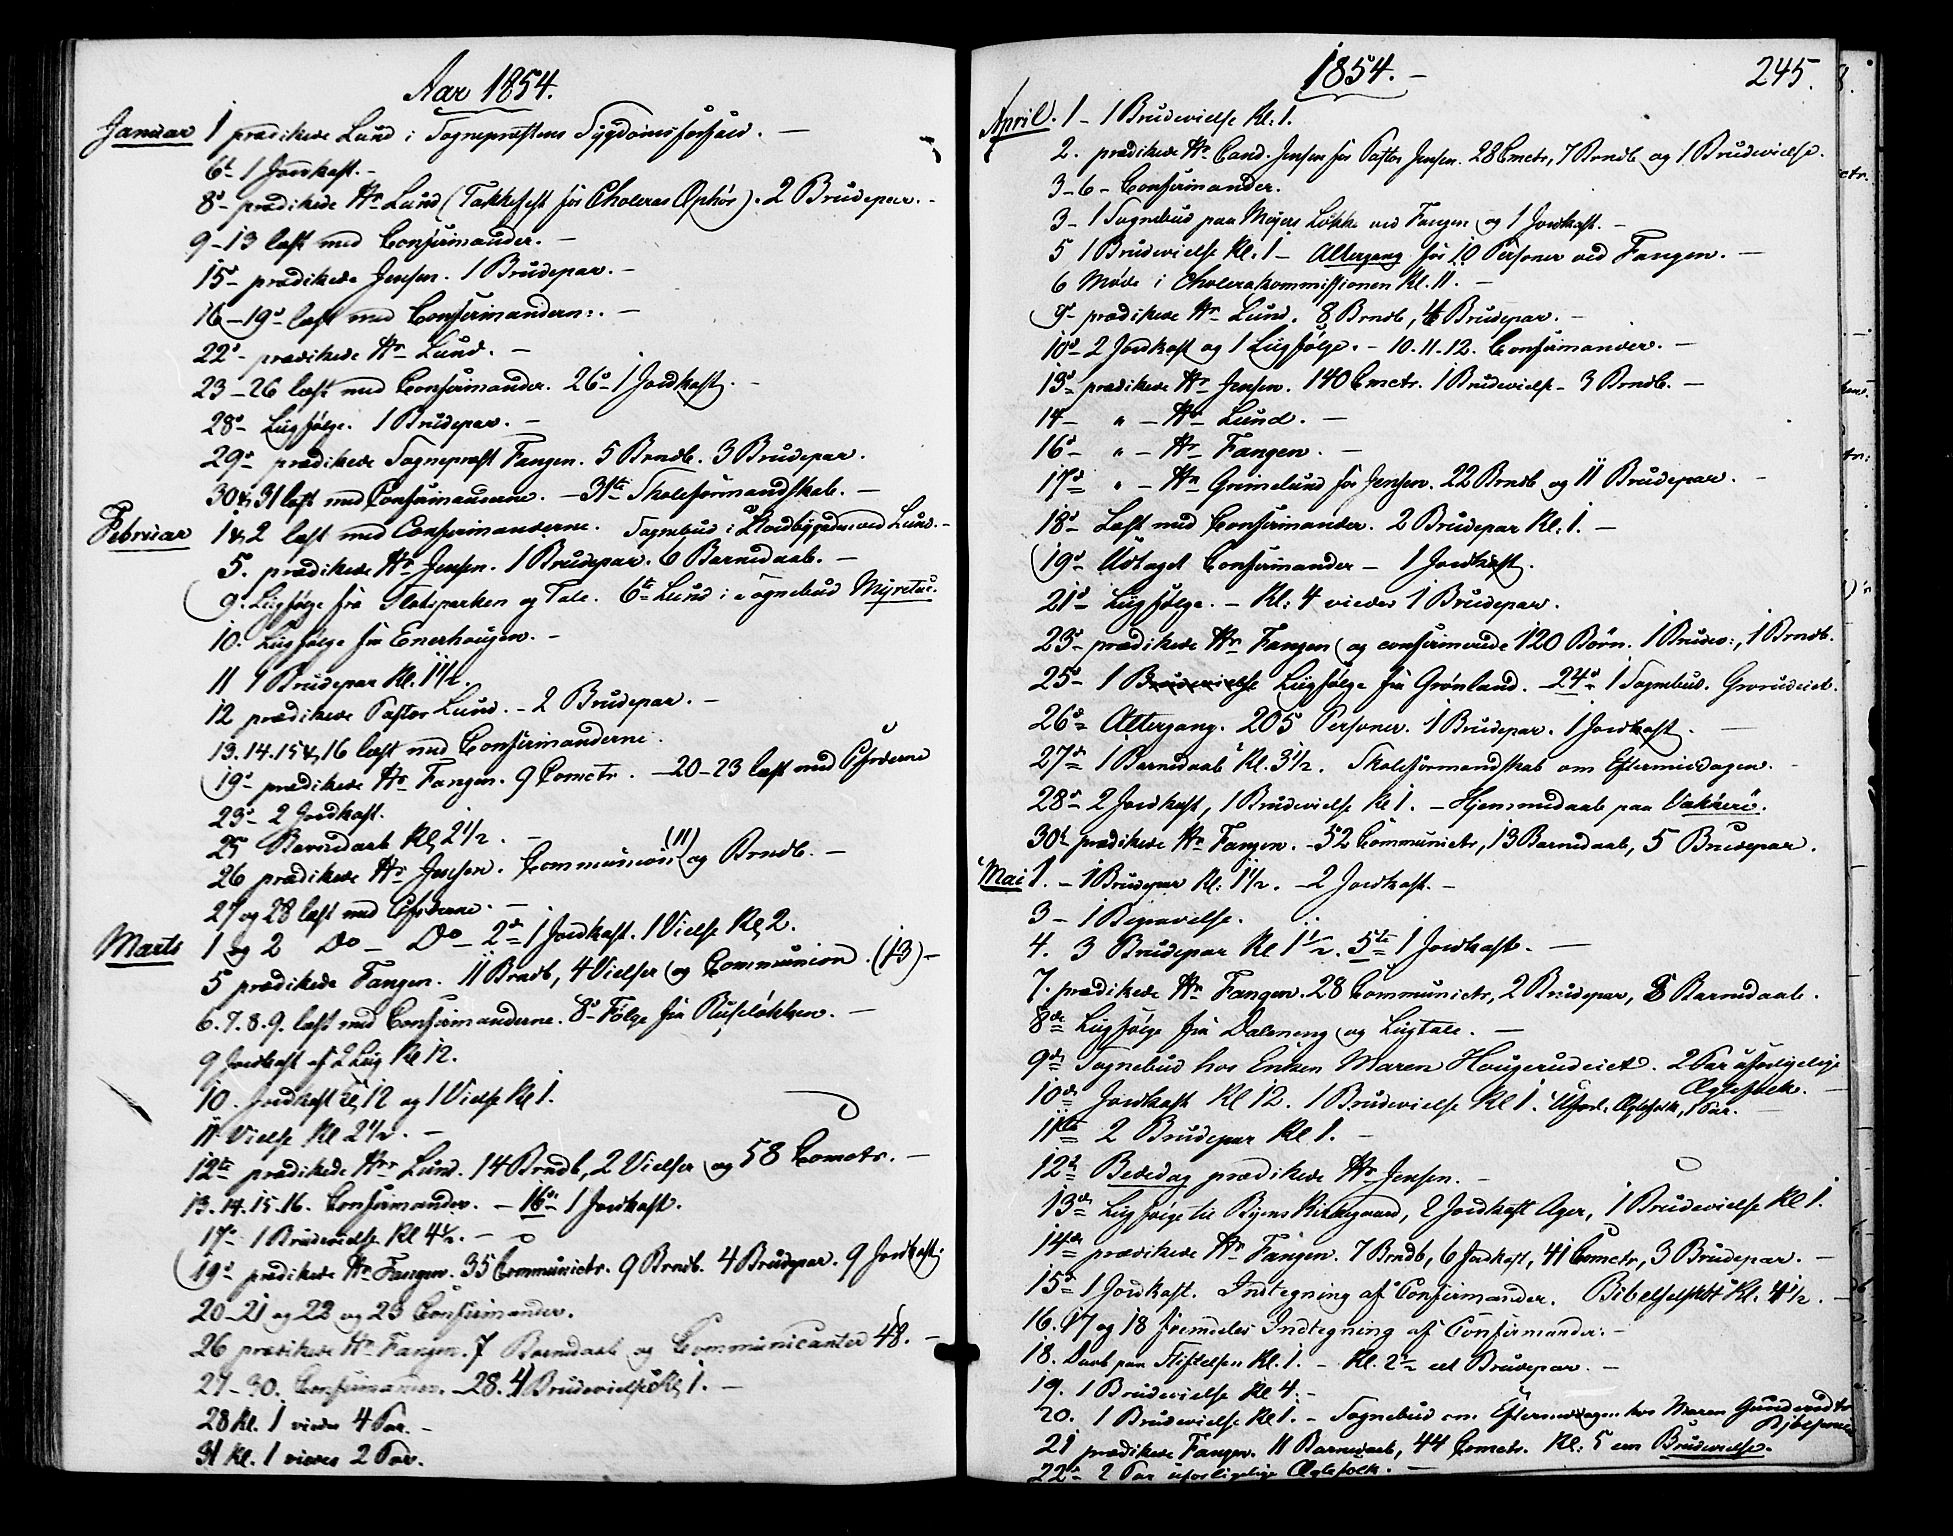 Aar 1854.
Januar 1 prædikede Lund i Sognepræstens Sygdomsforfald. –
6t 1 Jordkast. –
8d – prædikede Hr Lund (Takkefest for Choleras Ophør). 2 Brudepar. –
9–13 læst med Confirmander. –
15d – prædikede Jensen. 1 Brudepar. –
16–19d læst med Confirmandern:. –
22d – prædikede Hr Lund. –
23–26 læst med Confirmander. 26d – 1 Jordkast. –
28d – Liigfølge. 1 Brudepar. –
29d – prædikede Sognepræst Fangen. 5 Brndb. 3 Brudepar.
30 & 31 læst med Confirmanderne. – 31te Skoleformandskab. –
Februar 1 & 2 læst med Confirmanderne. Sognebud i ved Lund. –
5. prædikede Hr Jensen. 1 Brudepar. 6 Barnedaab. –
9. Liigfølge fra Slotsparken og Tale. 6te Lund i Sognebud
10. Liigfølge fra Enerhougen. –
11 1 Brudepar Kl. 1½.
12 prædikede Pastor Lund. – 2 Brudepar. –
13. 14. 15 & 16 læst med Confirmanderne.
19d – prædikede Hr Fangen. 9 Comctr. – 20–23 læst med Cfrderne
23d – 2 Jordkast.
25 Barnedaab Kl 2½. –
26 prædikede Hr Jensen. Communion (11) og Brndb. –
27 og 28 læst med Cfrderne. –
Marts 1 og 2 Do – Do – 2d 1 Jordkast. 1 Vielse Kl 2.
5 prædikede Fangen. 11 Brndb, 4 Vielser og Communion. (13) –
6. 7. 8. 9. læst med Confirmanderne. 8d – Følge fra Ruseløkken. –
9 Jordkast af 2 Liig Kl 12.
10. Jordkast Kl 12 og 1 Vielse Kl 1.
11 Vielse Kl 2½. –
12te prædikede Hr Lund. 14 Brndb, 2 Vielser og 58 Comctr. –
13. 14. 15. 16. Confirmander. – 16d – 1 Jordkast.
17d – 1 Brudevielse Kl 4½. –
19d prædikede Hr Fangen. 35 Communictr. 9 Brndb. 4 Brudepar. 9 Jordkast.
20–21 og 22 og 23 Confirmander.
26 prædikede Hr Fangen. 7 Barndaab og Communicanter 48. –
27–30. Confirmander. – 28. 4 Brudevielse Kl 1. –
28 Kl. 1 viedes 4 Par. –
31 Kl. 1 viedes 2 Par.
1854. –
245.
April. 1 – 1 Brudevielse Kl: 1.
2. prædikede Hr Cand. Jensen for Pastor Jensen. 28 Cmctr, 7 Brndb og 1 Brudevielse.
3–6 – Confirmander.
3 – 1 Sognebud paa Meyers Løkke ved Fangen og 1 Jordkast. –
5 1 Brudevielse Kl. 1 – Altergang for 10 Personer ved Fangen. –
6 Møde i Cholerakommissionen Kl. 11. –
9d – prædikede Hr Lund. 8 Brndb, 4 Brudepar. –
10d – 2 Jordkast og 1 Liigfølge. – 10. 11. 12. Confirmander. –
13d – prædikede Hr Jensen. 140 Cmctr. 1 Brudevielse – 3 Brndb. –
14 – " – Hr Lund. –
16d – " – Hr Fangen. –
17d – " – Hr Grimelund for Jensen. 22 Brndb og 11 Brudepar. –
18d – Læst med Confirmander. 2 Brudepar Kl: 1. –
19d – Udtaget Confirmander – 1 Jordkast.
21d – Liigfølge. – Kl: 4 viedes 1 Brudepar.
23d – prædikede Hr Fangen og confirmerede 120 Børn. 1 Brudev:, 1 Brndb.
25d – 1 Brudevielse Liigfølge fra Grønland. 24d 1 Sognebud. Grorudeiet.
26d – Altergang. 205 Personer. 1 Brudepar. 1 Jordkast. –
27de 1 Barnedaab Kl. 3½. Skoleformandskab om Eftermiddagen. –
28d – 2 Jordkast, 1 Brudevielse Kl 1. – Hjemmedaab paa Vækkerø.
30t prædikede Hr Fangen. – 52 Communictr, 13 Barnedaab, 5 Brudepar.
Mai 1. – 1 Brudepar Kl: 1½. – 2 Jordkast. –
3 – 1 Begravelse.
4. 3 Brudepar Kl 1½. 5te 1 Jordkast. –
7. prædikede Hr Fangen. 28 Communictr, 2 Brudepar, 8 Barnedaab.
8de Liigfølge fra Daleneng og Liigtale. –
9de Sognebud hos Enken Maren Hougerudeiet. 2 Par uforligelige
Ægtefolk. –
10de Jordkast Kl 12. 1 Brudevielse Kl 1. Uforl. Ægtefolk, 1 Par.
11te 2 Brudepar Kl 1. –
12te Bededag prædikede Hr Jensen. –
13de Liigfølge til Byens Kirkegaard, 2 Jordkast Ager, 1 Brudevielse Kl 1.
14de prædikede Hr Fangen. 7 Brndb, 6 Jordkast, 41 Comctr, 3 Brudepar. –
15d 1 Jordkast. Indtegning af Confirmander. Bibelselskab Kl. 4½. –
16. 17 og 18 fremdeles Indtegning af Confirmander. –
18. Daab paa Stiftelsen Kl. 1. – Kl. 2½ eet Brudepar. –
19. 1 Brudevielse Kl 4. –
20. 1 Brudevielse Kl 1. – Sognebud om Eftermiddagen hos Maren
21 prædikede Fangen. 11 Barnedaab, 44 Comctr. Kl: 5 een Brudevielse.
22d – 2 Par uforligelige Ægtefolk. –